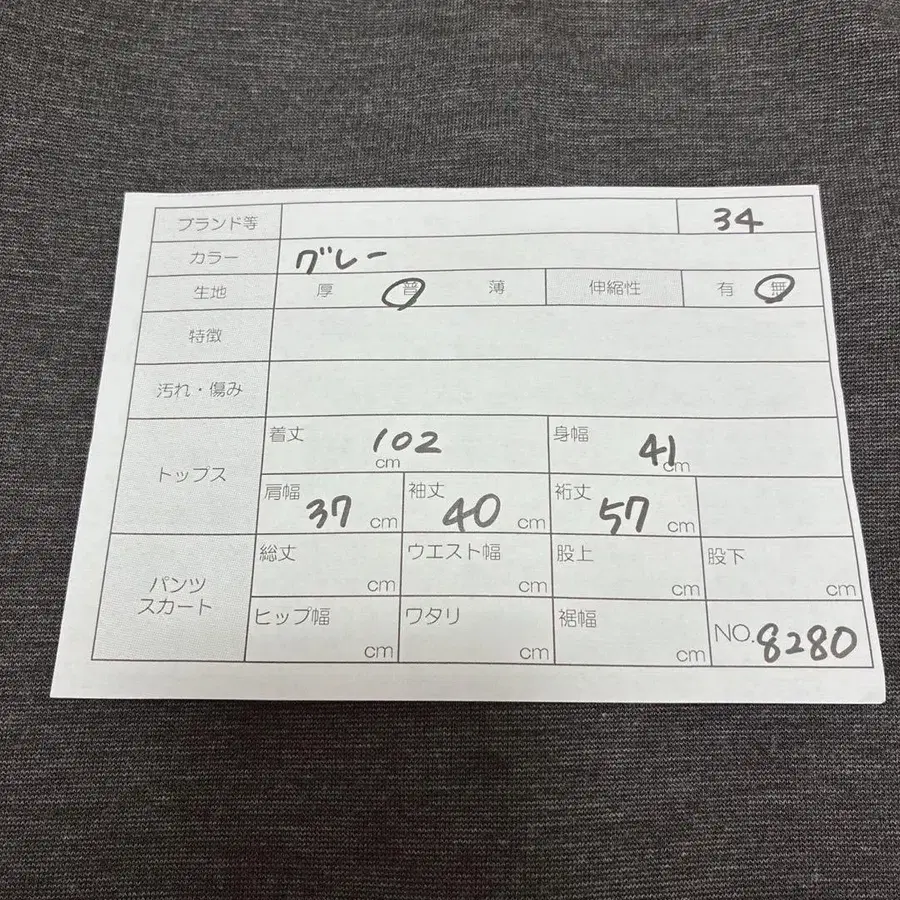 ブランド等 34
カラー グレー
生地 厚 普 薄 伸縮性 有 無
特徴
汚れ・傷み
トップス 着丈 102 cm 身幅 41 cm
肩幅 37 cm 袖丈 40 cm 裄丈 57 cm
パンツ スカート 総丈 cm ウエスト幅 cm 股上 cm 股下 cm
ヒップ幅 cm ワタリ cm 裾幅 cm NO.8280